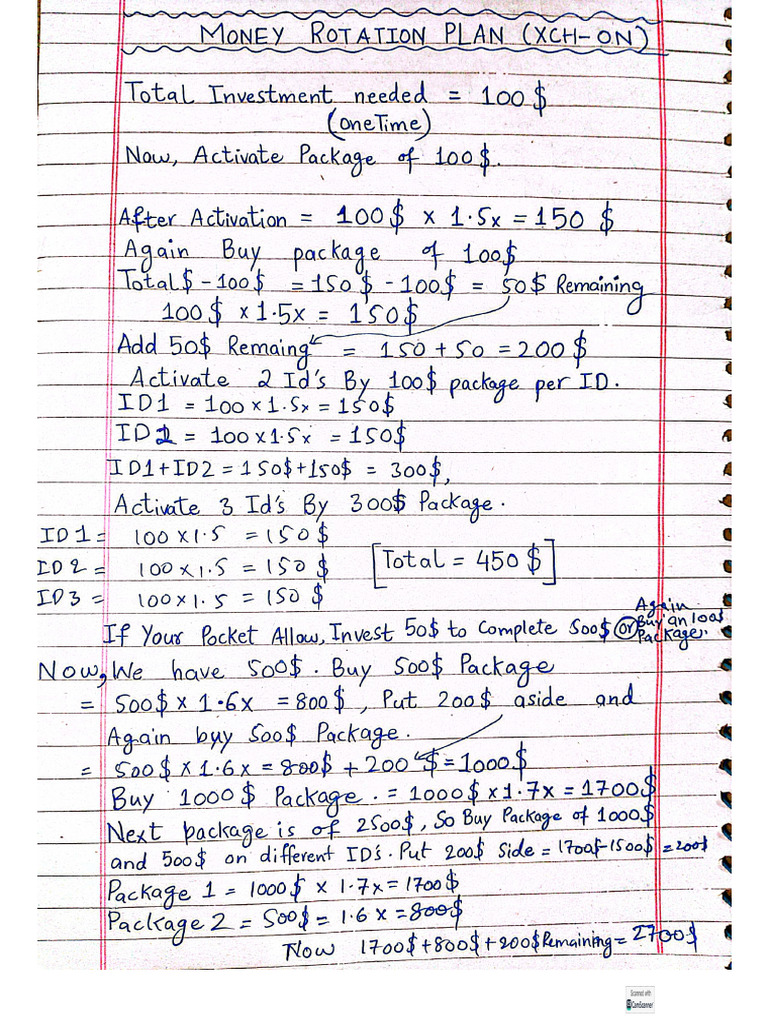 MONEY ROTATION PLAN (XCH-ON)
Total Investment needed = 100$
(oneTime)
Now, Activate Package of 100$.
After Activation = 100$ x 1.5x = 150 $
Again Buy package of 100$
Total$ - 100$ = 150$ - 100$ = 50$ Remaining
100$ x 1.5x = 150$
Add 50$ Remaing = 150 + 50 = 200$
Activate 2 Id's By 100$ package per ID.
ID1 = 100 x 1.5x = 150$
ID2 = 100 x 1.5x = 150$
ID1+ID2 = 150$+150$ = 300$,
Activate 3 Id's By 300$ Package.
ID1 = 100 x 1.5 = 150 $
ID2 = 100 x 1.5 = 150 $ [Total = 450 $]
ID3 = 100 x 1.5 = 150 $
If Your Pocket Allow, Invest 50$ to Complete 500$ or Again Buy an 100$ Package.
Now, We have 500$. Buy 500$ Package
= 500$ x 1.6x = 800$, Put 200$ aside and
Again buy 500$ Package.
= 500$ x 1.6x = 800$ + 200$ = 1000$
Buy 1000$ Package. = 1000$ x 1.7x = 1700$
Next package is of 2500$, So Buy Package of 1000$
and 500$ on different ID's. Put 200$ Side = 1700$-1500$ = 200$
Package 1 = 1000$ x 1.7x = 1700$
Package 2 = 500$ = 1.6x = 800$
Now 1700$+800$+200$Remaining = 2700$
Scanned with
CamScanner